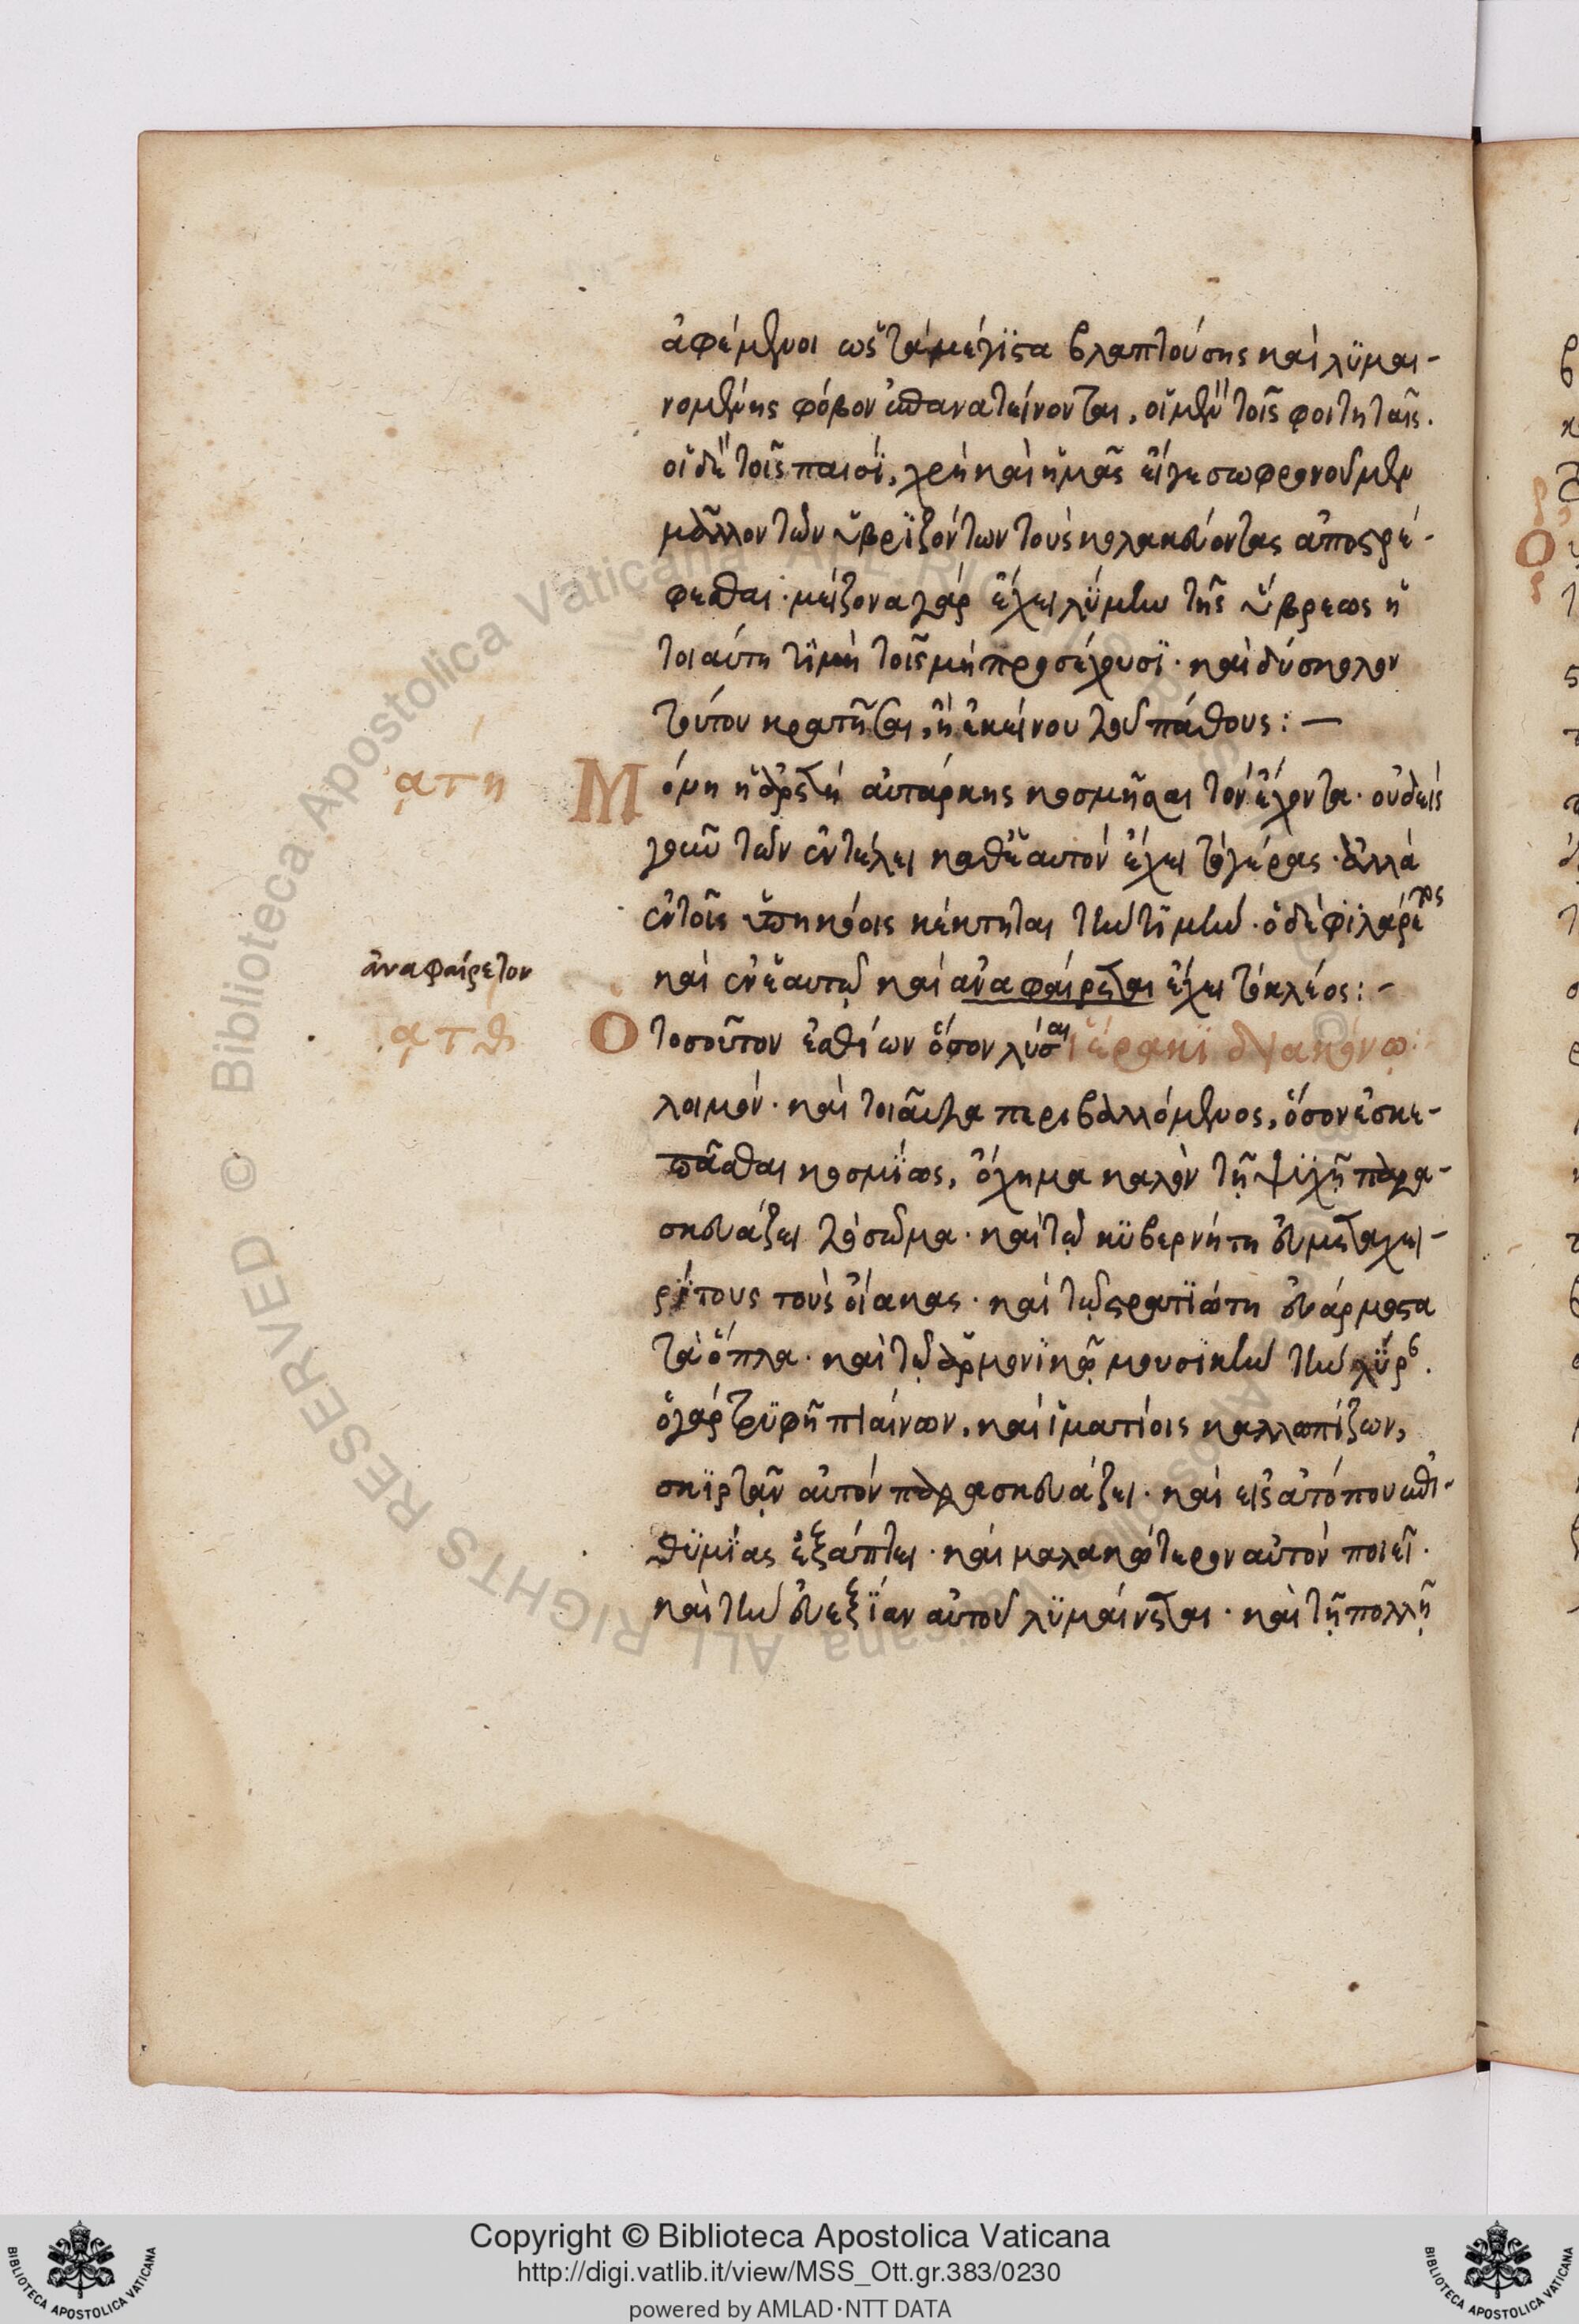 ἀφέμενοι ὡς τὰ μέγιστα βλαπτούσης καὶ λυμαι-
νομένης φόβον ἐπανατείνονται, οἱ μὲν τοῖς φοιτηταῖς.
οἱ δὲ τοῖς παισί, χρὴ καὶ ἡμᾶς εἴγε σωφρονοῦμεν
μᾶλλον τῶν ὑβριζόντων τοὺς κολακεύοντας ἀποστρέ-
φεσθαι· μείζονα γὰρ ἔχει λύμην τῆς ὕβρεως ἡ
τοιαύτη τιμὴ τοῖς μὴ προσέχουσι· καὶ δύσκολον
τούτου κρατῆσαι, ἢ ἐκείνου τοῦ πάθους: —
ατη
Μόνη ἡ ἀρετὴ αὐτάρκης κοσμῆσαι τὸν ἔχοντα· οὐδεὶς
γοῦν τῶν ἐν τέλει καθ' ἑαυτὸν ἔχει τὸ γέρας· ἀλλὰ
ἐν τοῖς ὑπηκόοις κέκτηται τὴν τιμήν· ὁ δὲ φιλάρετος
ἀναφαίρετον
καὶ ἐν ἑαυτῷ καὶ ἀναφαίρεται ἔχει τὸ κλέος: -
ατθ
Ὁ τοσοῦτον ἐσθίων ὅσον λῦσαι ἱέρακι διακόνῳ:
λοιμόν· καὶ τοιαῦτα περιβαλλόμενος, ὅσον ἐσκε-
πᾶσθαι κοσμίως, ὄχημα καλὸν τῇ ψυχῇ παρα-
σκευάζει τὸ σῶμα· καὶ τῷ κυβερνήτη εὐμεταχει-
ρίτους τοὺς οἴακας· καὶ τῷ στρατιώτη εὐάρμοστα
τὰ ὅπλα· καὶ τῷ ἁρμονικῷ μουσικὴν τὴν λύραν.
ὁ γὰρ τρυφῇ πιαίνων, καὶ ἱματίοις καλλωπίζων,
σκιρτᾷν αὐτὸν παρασκευάζει· καὶ εἰς ἀτόπον ἐπι-
θυμίας ἐξάπτει· καὶ μαλακώτερον αὐτὸν ποιεῖ·
καὶ τὴν εὐεξίαν αὐτοῦ λυμαίνεται· καὶ τῇ πολλῇ
Copyright © Biblioteca Apostolica Vaticana
http://digi.vatlib.it/view/MSS_Ott.gr.383/0230
powered by AMLAD·NTT DATA